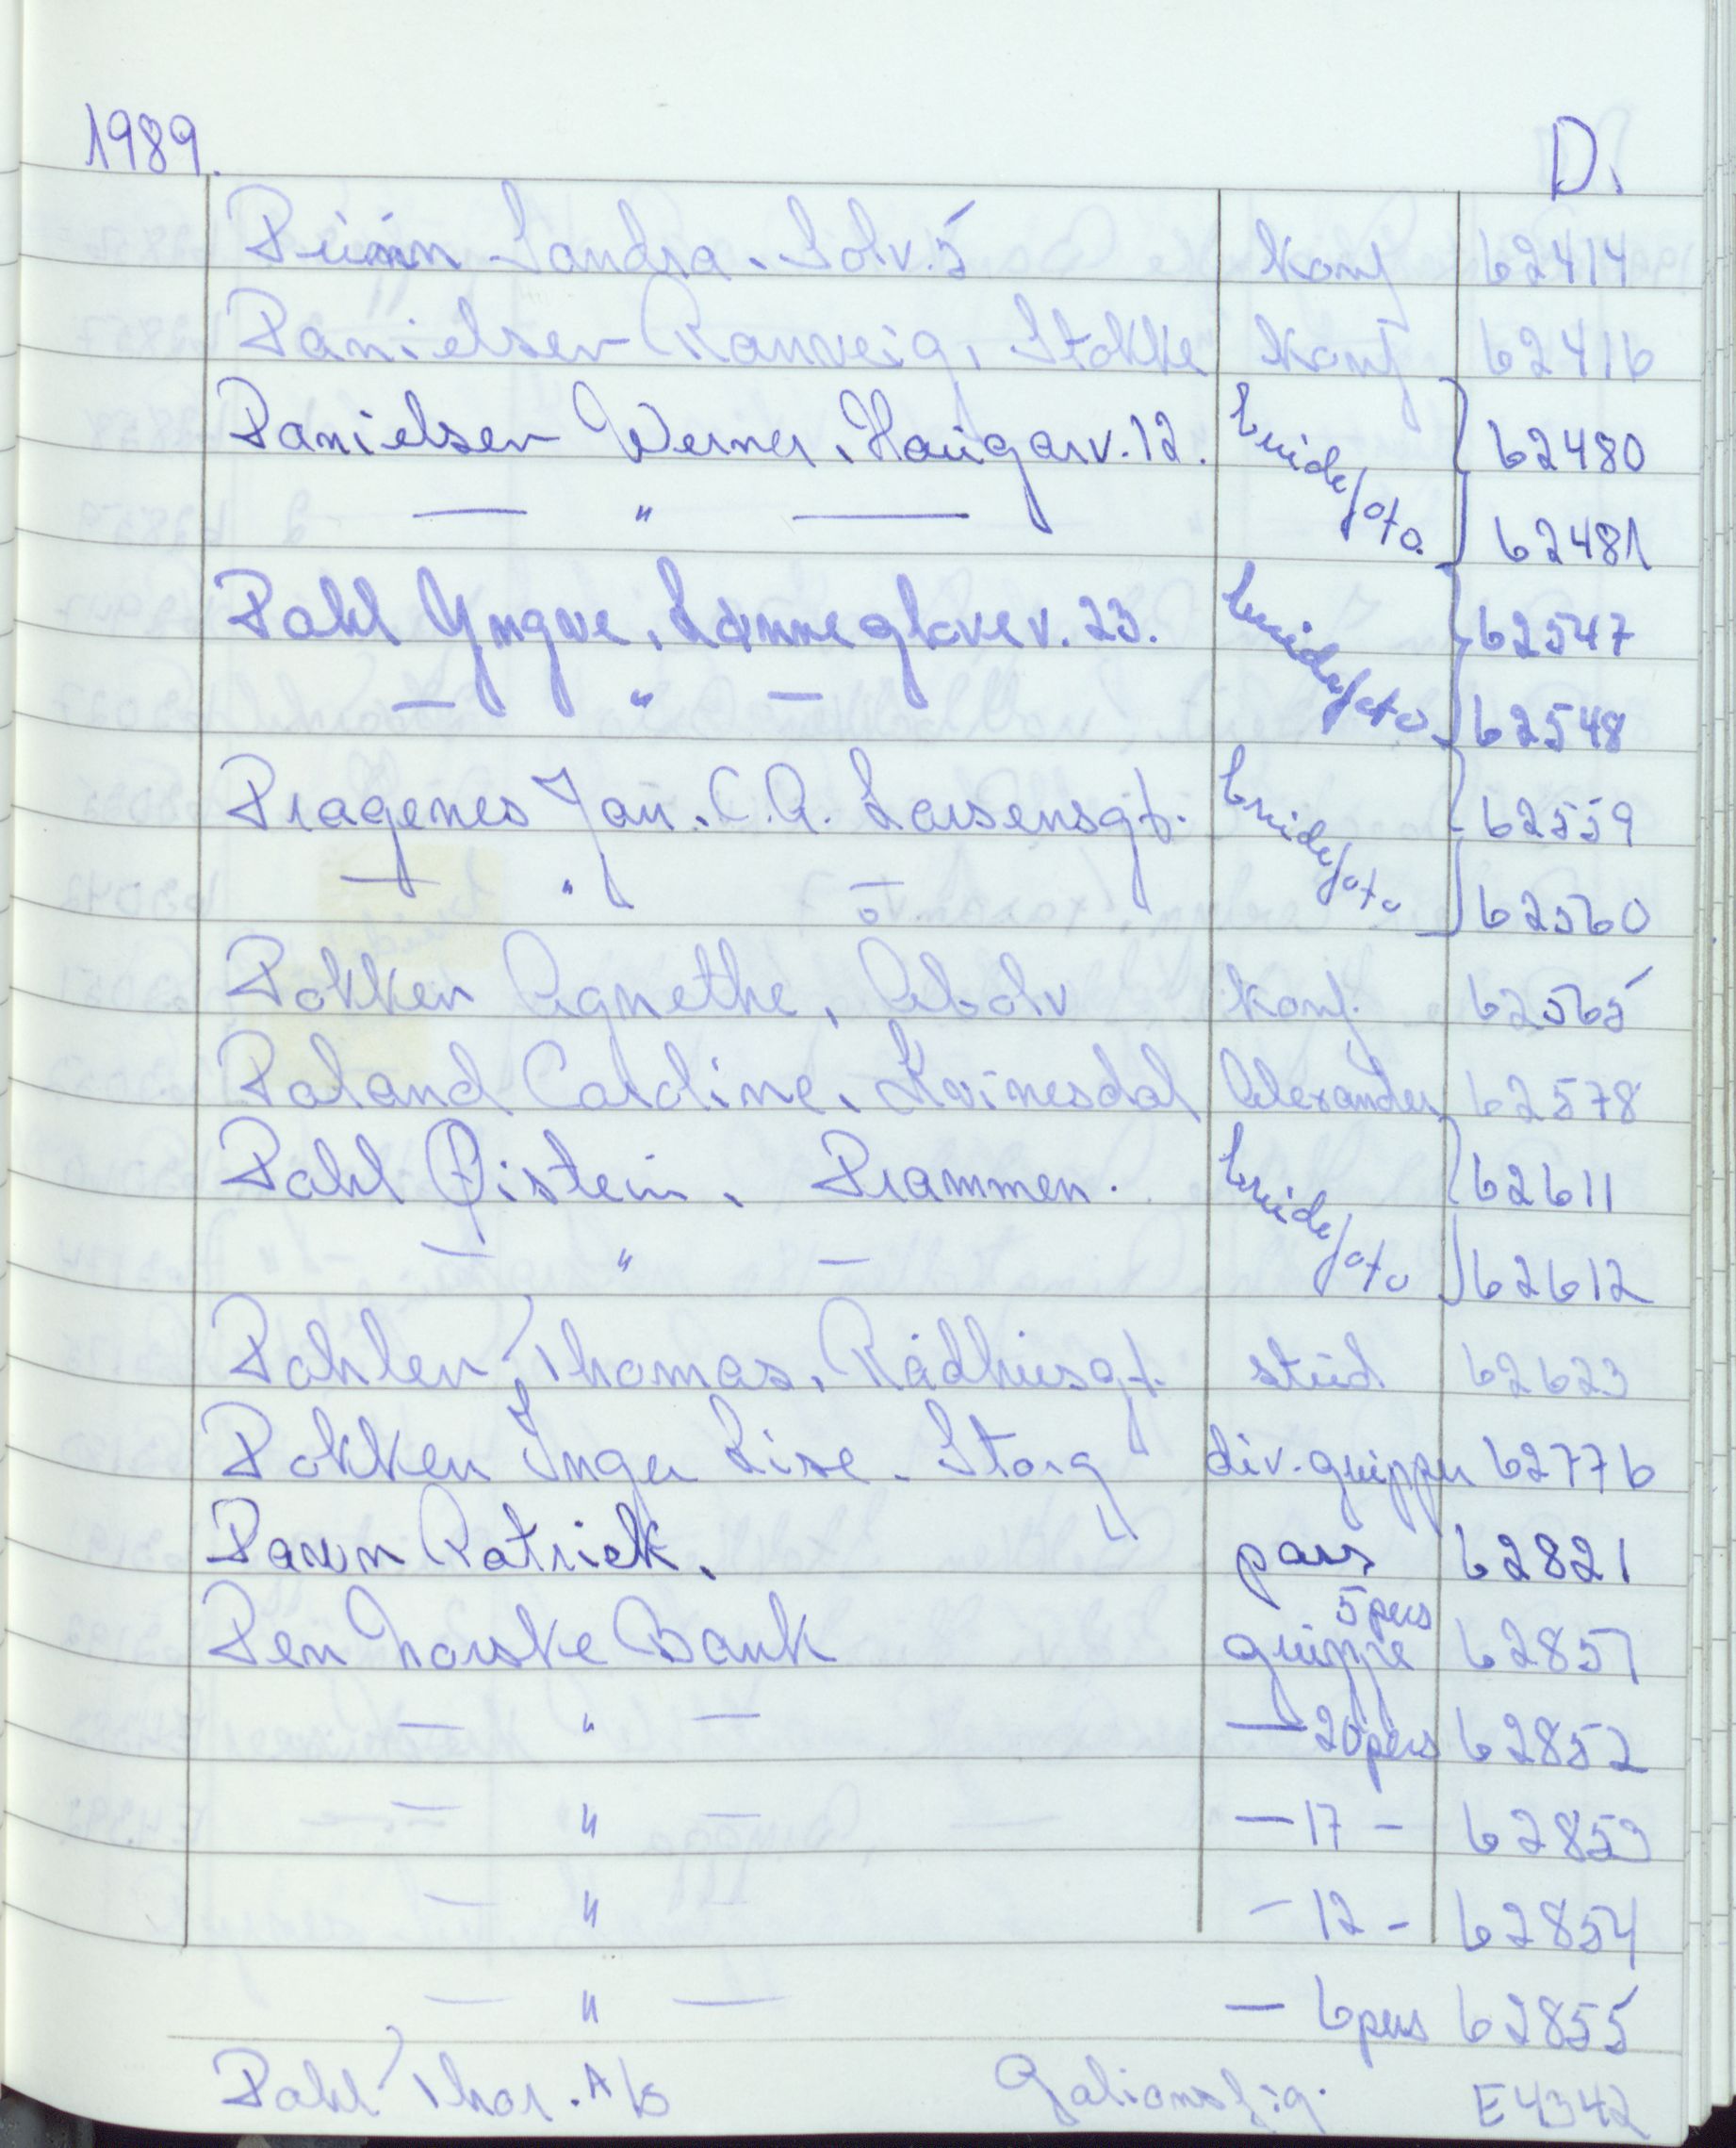 1989. D.
Sandra. Solv. 5 Konf 62414
Danielsen Ranveig, Stokke Konf 62416
Danielsen Werner, Haugarv. 12. brudefoto. 62480
— " — 62481
Dahl Yngve, Lønneglovev. 23. brudefoto 62547
— " — 62548
Dragenes Jan. C.A. Larsensgt. brudefoto 62559
— " — 62560
Dokken Agnethe, Konf. 62565
Doland Caroline, Kvinesdal Alexander 62578
Dahl Øistein, Drammen. brudefoto 62611
— " — 62612
Dahlen, Thomas, Rådhusgt. stud. 62623
Dokken Inger Lise. Storg div. grupper 62776
Dawn Patrick. pass 62821
Den norske Bank gruppe 5 pers 62851
— " — — 20 pers 62852
— " — — 17 — 62853
— " — — 12 — 62854
— " — — 6 pers 62855
Dahl Thor. A/S Galionsfig. E4342